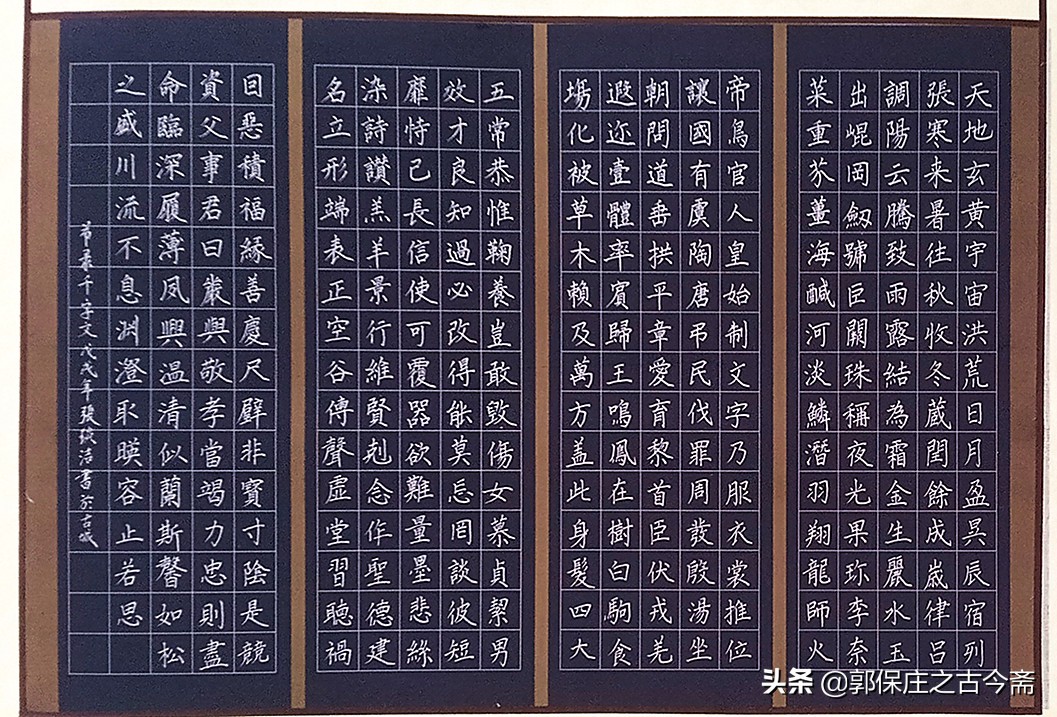 天地玄黄宇宙洪荒日月盈昃辰宿列
張寒来暑往秋收冬蔵閏餘成嵗律吕
調陽云騰致雨露結為霜金生麗水玉
出崐岡劒號巨闕珠稱夜光果珎李奈
菜重芥薑海鹹河淡鱗潛羽翔龍師火
帝鳥官人皇始制文字乃服衣裳推位
讓國有虞陶唐弔民伐罪周發殷湯坐
朝問道垂拱平章愛育黎首臣伏戎羌
遐迩壹體率賓歸王鳴鳳在樹白駒食
場化被草木賴及萬方盖此身髮四大
五常恭惟鞠養豈敢毀傷女慕貞絜男
效才良知過必改得能莫忘罔談彼短
靡恃己長信使可覆器欲難量墨悲絲
染詩讃羔羊景行維賢剋念作聖德建
名立形端表正空谷傳聲虛堂習聽禍
囙惡積福縁善慶尺璧非寶寸陰是競
資父事君曰嚴與敬孝當竭力忠則盡
命臨深履薄夙興温清似蘭斯馨如松
之盛川流不息渊澄取暎容止若思
節录千字文 戊戌年張洁書於古城
头条 @郭保庄之古今斋